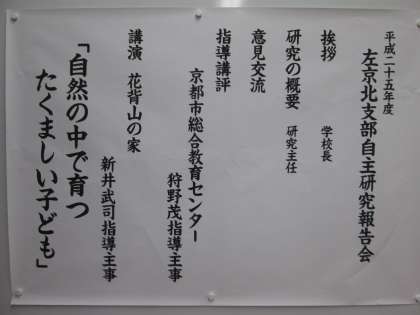 平成二十五年度
左京北支部自主研究報告会
挨拶 学校長
研究の概要 研究主任
意見交流
指導講評
京都市総合教育センター
狩野茂指導主事
講演 花背山の家
新井武司指導主事
「自然の中で育つ
たくましい子ども」